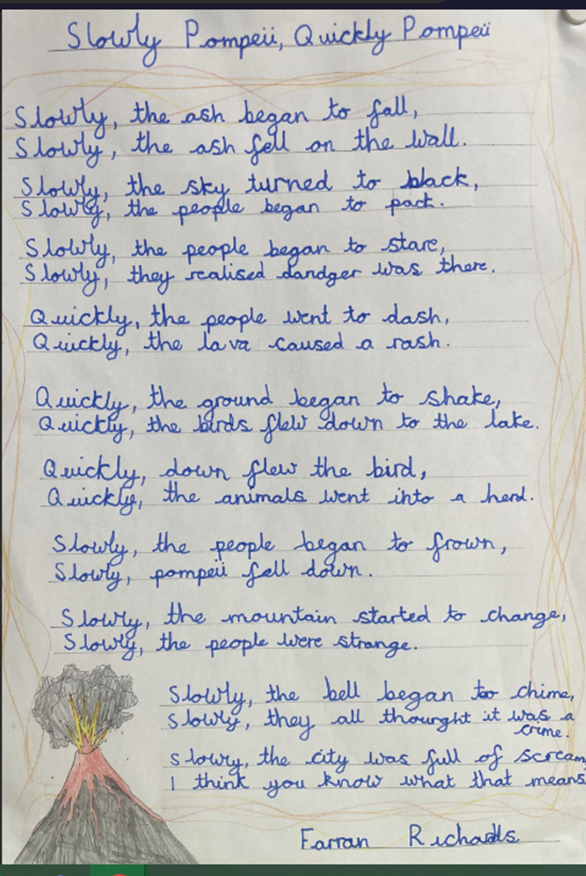 Slowly Pompeii, Quickly Pompeii
Slowly, the ash began to fall,
Slowly, the ash fell on the wall.
Slowly, the sky turned to black,
Slowly, the people began to pack.
Slowly, the people began to stare,
Slowly, they realised dandger was there.
Quickly, the people went to dash,
Quickly, the lava caused a rash.
Quickly, the ground began to shake,
Quickly, the birds flew down to the lake.
Quickly, down flew the bird,
Quickly, the animals went into a herd.
Slowly, the people began to frown,
Slowly, pompeii fell down.
Slowly, the mountain started to change,
Slowly, the people were strange.
Slowly, the bell began to chime,
Slowly, they all thought it was a
crime.
Slowly, the city was full of scream
I think you know what that means
Farran Richards